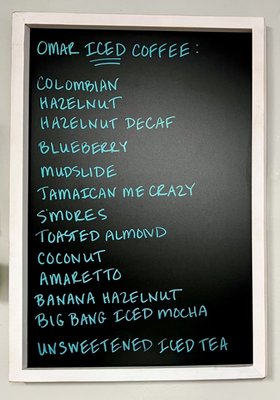 OMAR ICED COFFEE:
COLOMBIAN
HAZELNUT
HAZELNUT DECAF
BLUEBERRY
MUDSLIDE
JAMAICAN ME CRAZY
S'MORES
TOASTED ALMOND
COCONUT
AMARETTO
BANANA HAZELNUT
BIG BANG ICED MOCHA
UNSWEETENED ICED TEA